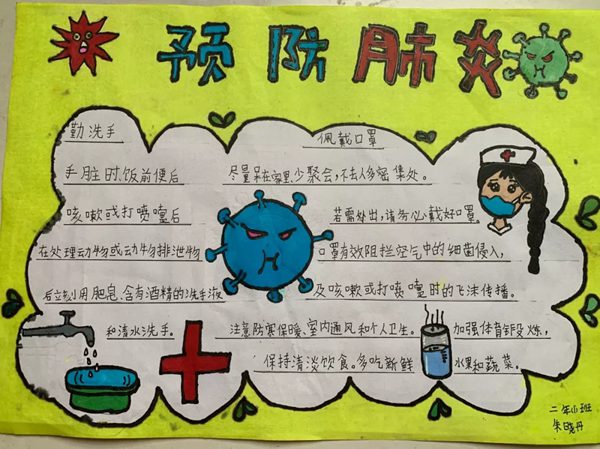 预防肺炎
勤洗手
手脏时、饭前便后
咳嗽或打喷嚏后
在处理动物或动物排泄物
后立刻用肥皂、含有酒精的洗手液
和清水洗手。
佩戴口罩
尽量呆在家里、少聚会,不去人多密集处。
若需处出,请务必戴好口罩。
口罩有效阻拦空气中的细菌侵入,
及咳嗽或打喷嚏时的飞沫传播。
注意防寒保暖、室内通风和个人卫生。加强体育锻炼,
保持清淡饮食。多吃新鲜水果和蔬菜。
二年 班
朱晓丹